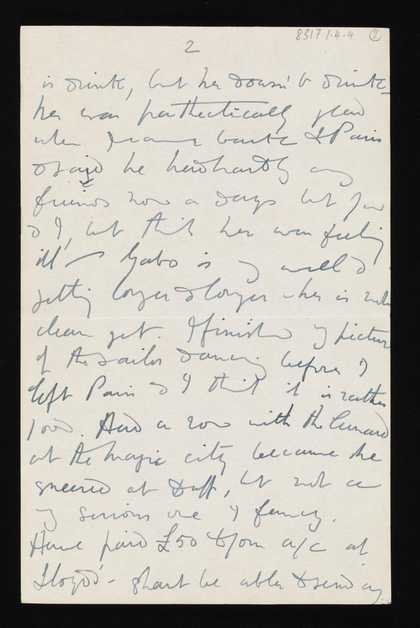 8317/1.4.4 2
2
is drink, but he doesn't drink
he was parthectically glad
when I came back to Paris
& said he had hardly any
friends now a days but you
& I, but think he was feeling
ill – Gabo is v well &
getting larger & larger – he is
clean yet. I finished my picture
of the sailor dancing before I
left Paris & I think it is rather
good. Had a row with the Cunard
at the magic city because she
sneered at Duff, but not a
v serious one I fancy.
Have paid £50 to your a/c at
Lloyds – shant be able to send any